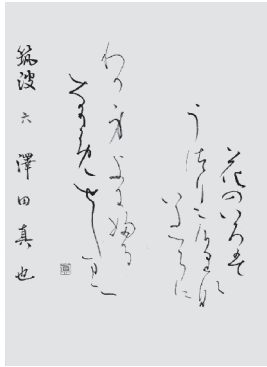 花のいろは
うつりにけりな
いたつらに
わか身よにふる
なかめせしまに
筑波 六 澤田真也